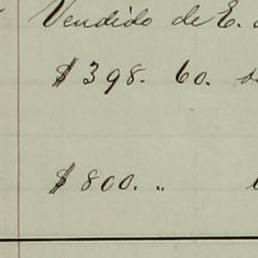 Vendido de E.
$398. 60.
$800. "